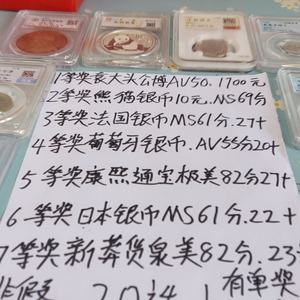 1等奖袁大头公博AV50.1700元
2等奖熊猫银币10元.NS69分
3等奖法国银币MS61分.27+
4等奖葡萄牙银币.AV55分20+
5等奖康熙通宝极美82分27+
6等奖日本银币MS61分.22+
7等奖新莽货泉美82分.23
有单奖